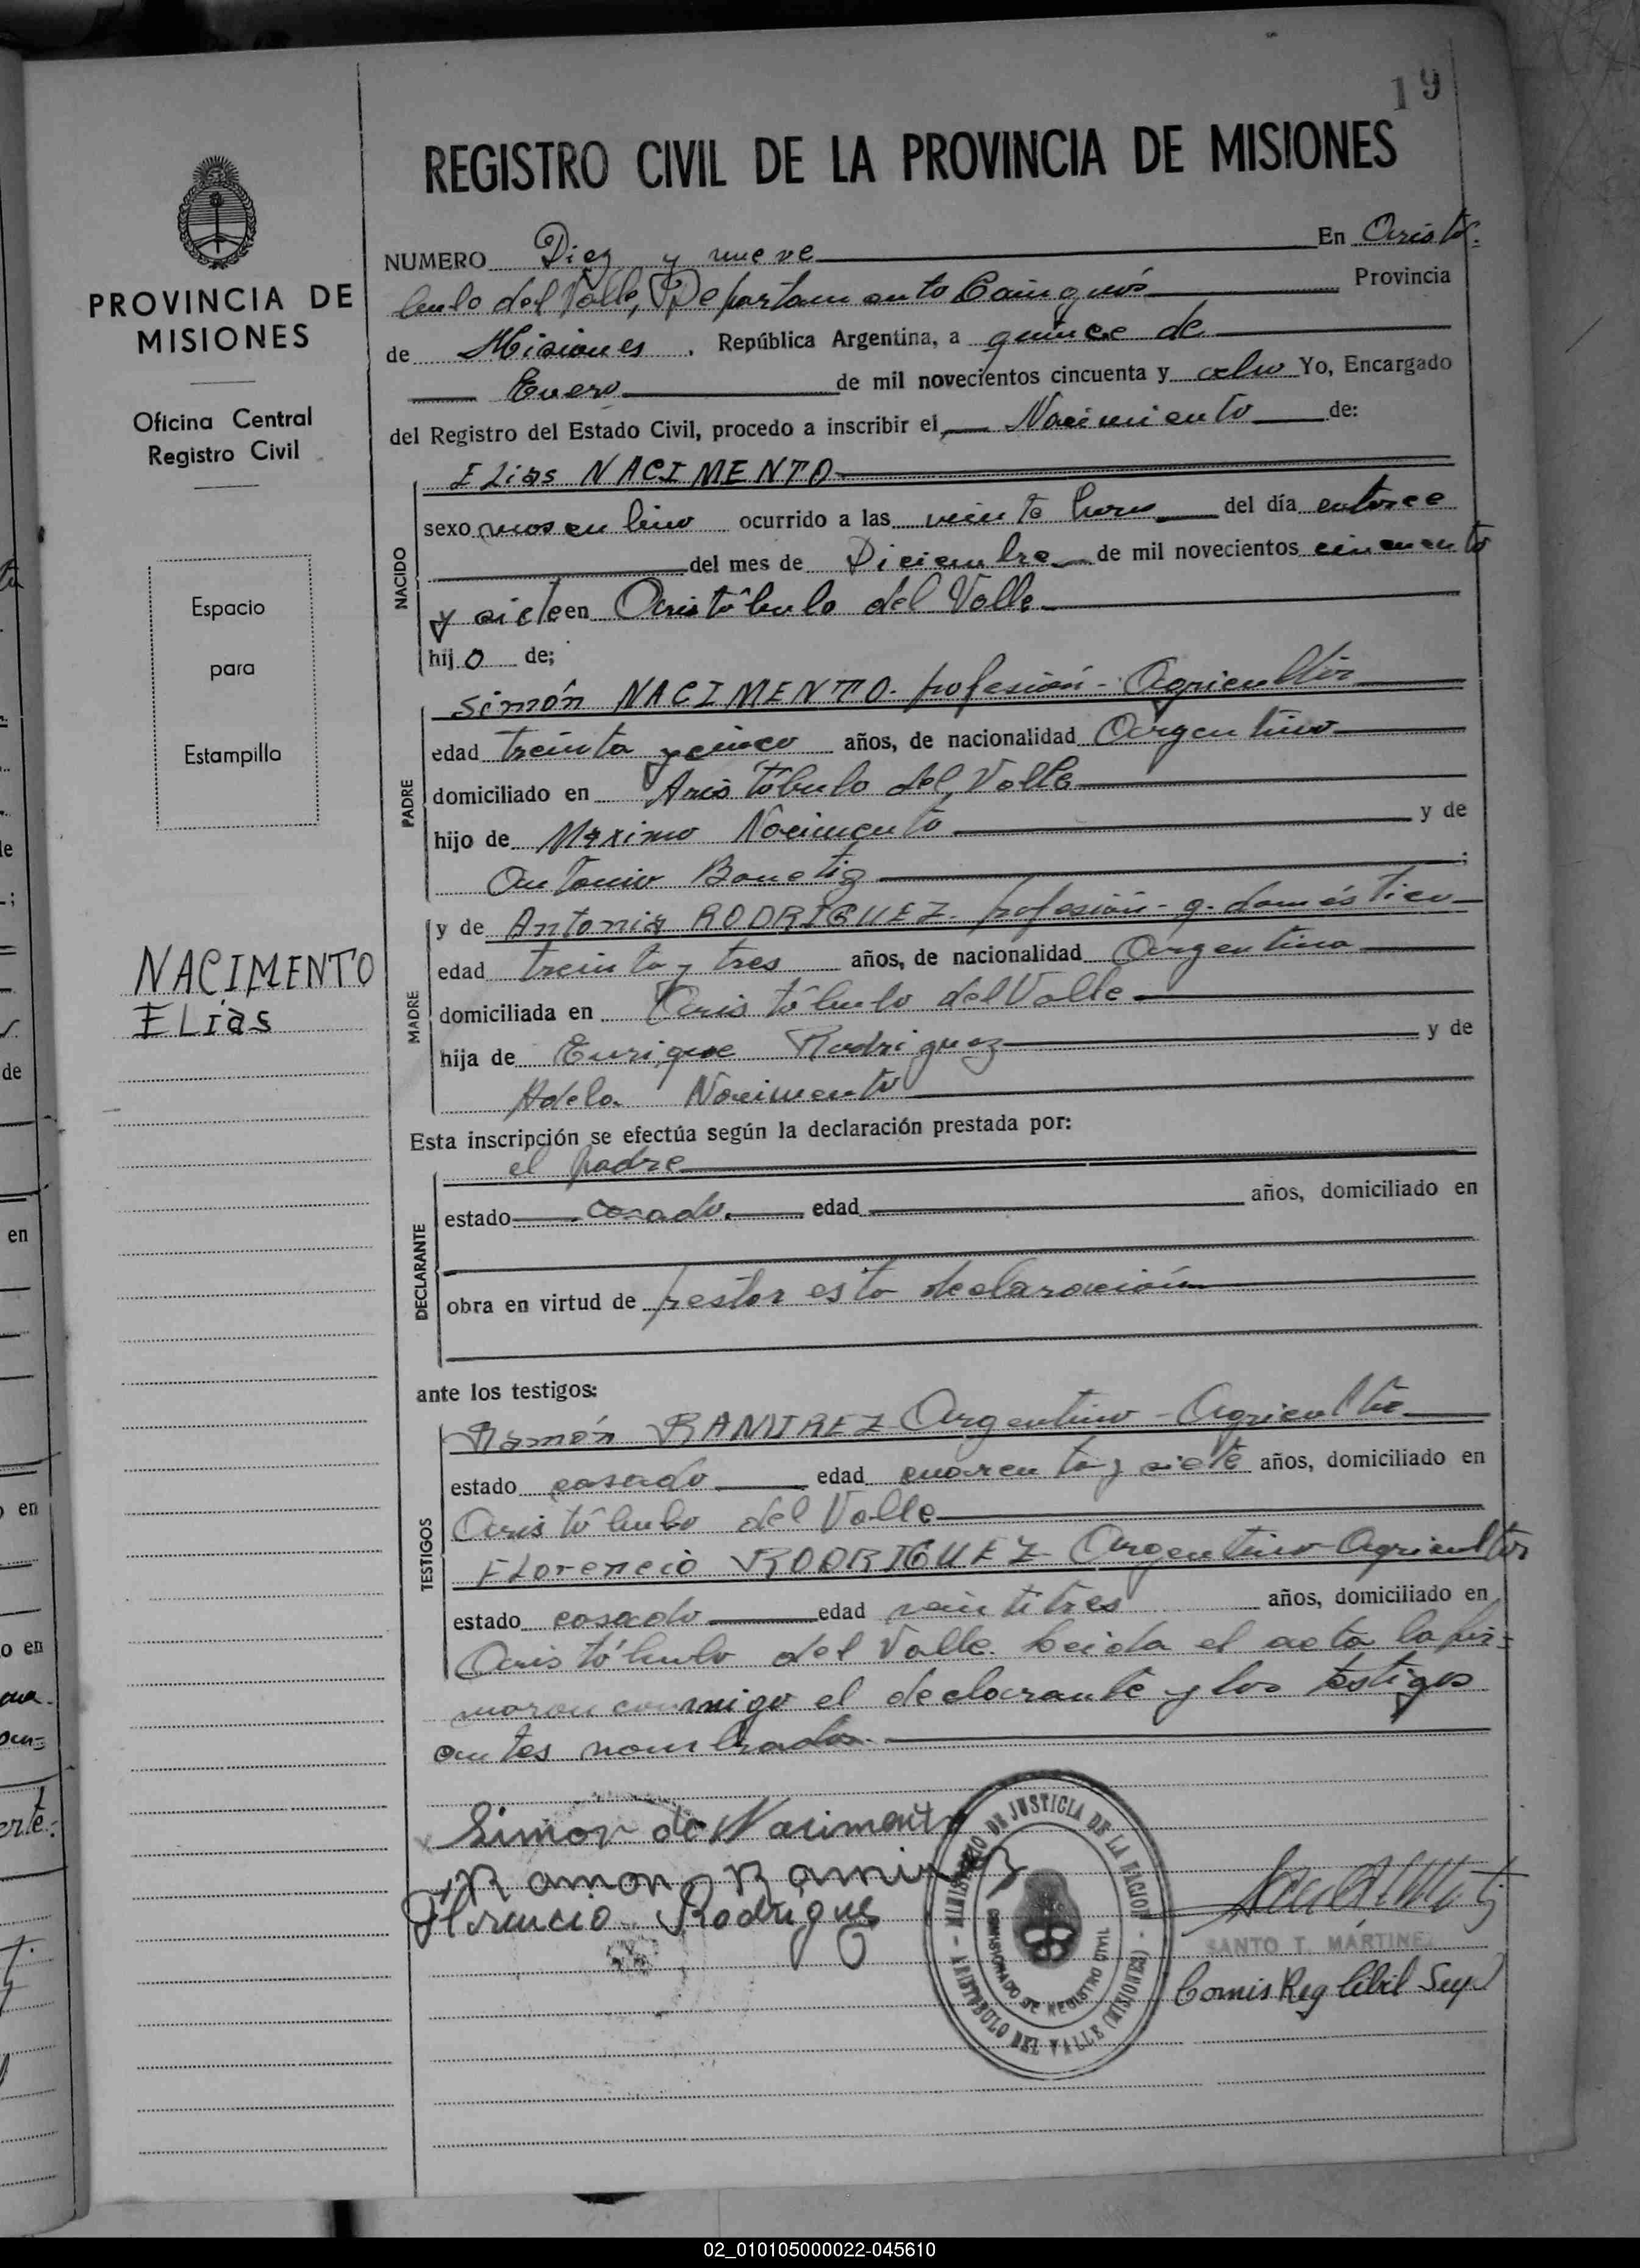 19
REGISTRO CIVIL DE LA PROVINCIA DE MISIONES
PROVINCIA DE
MISIONES
Oficina Central
Registro Civil
Espacio
para
Estampilla
NACIMENTO
ELias
NUMERO Diez y nueve En Aristó-
bulo del Valle, Departamento Cainguás Provincia
de Misiones . República Argentina, a quince de
Enero de mil novecientos cincuenta y ocho Yo, Encargado
del Registro del Estado Civil, procedo a inscribir el Nacimiento de:
ELias NACIMENTO
NACIDO
sexo masculino ocurrido a las veinte horas del día catorce
del mes de Diciembre de mil novecientos cincuenta
y siete en Aristóbulo del Valle
hij o de;
Simón NACIMENTO. profesión - Agricultor
PADRE
edad treinta y cinco años, de nacionalidad Argentino
domiciliado en Aristóbulo del Valle
hijo de Maximo Nacimento y de
Antonia ;
y de Antonia RODRIGUEZ. profesión - q. doméstico
MADRE
edad treinta y tres años, de nacionalidad Argentina
domiciliada en Aristóbulo del Valle
hija de Enrique Rodriguez y de
Adela Nacimento
Esta inscripción se efectúa según la declaración prestada por:
el padre
DECLARANTE
estado casado. edad años, domiciliado en
obra en virtud de prestar esta declaración
ante los testigos:
Ramón RAMIREZ Argentino - Agricultor
TESTIGOS
estado casado edad cuarenta y siete años, domiciliado en
Aristóbulo del Valle
FLorencio RODRIGUEZ Argentino - Agricultor
estado casado edad veintitres años, domiciliado en
Aristóbulo del Valle. Leida el acta la fir-
maron conmigo el declarante y los testigos
antes nombrados.
Simon de Naciment
Ramon Ramirez
Florencio Rodrigues
MINISTERIO DE JUSTICIA DE LA NACION
COMISIONADO DE REGISTRO CIVIL
ARISTOBULO DEL VALLE (MISIONES)
SANTO T. MARTINEZ
Comis Reg Cibil Sup
02_010105000022-045610